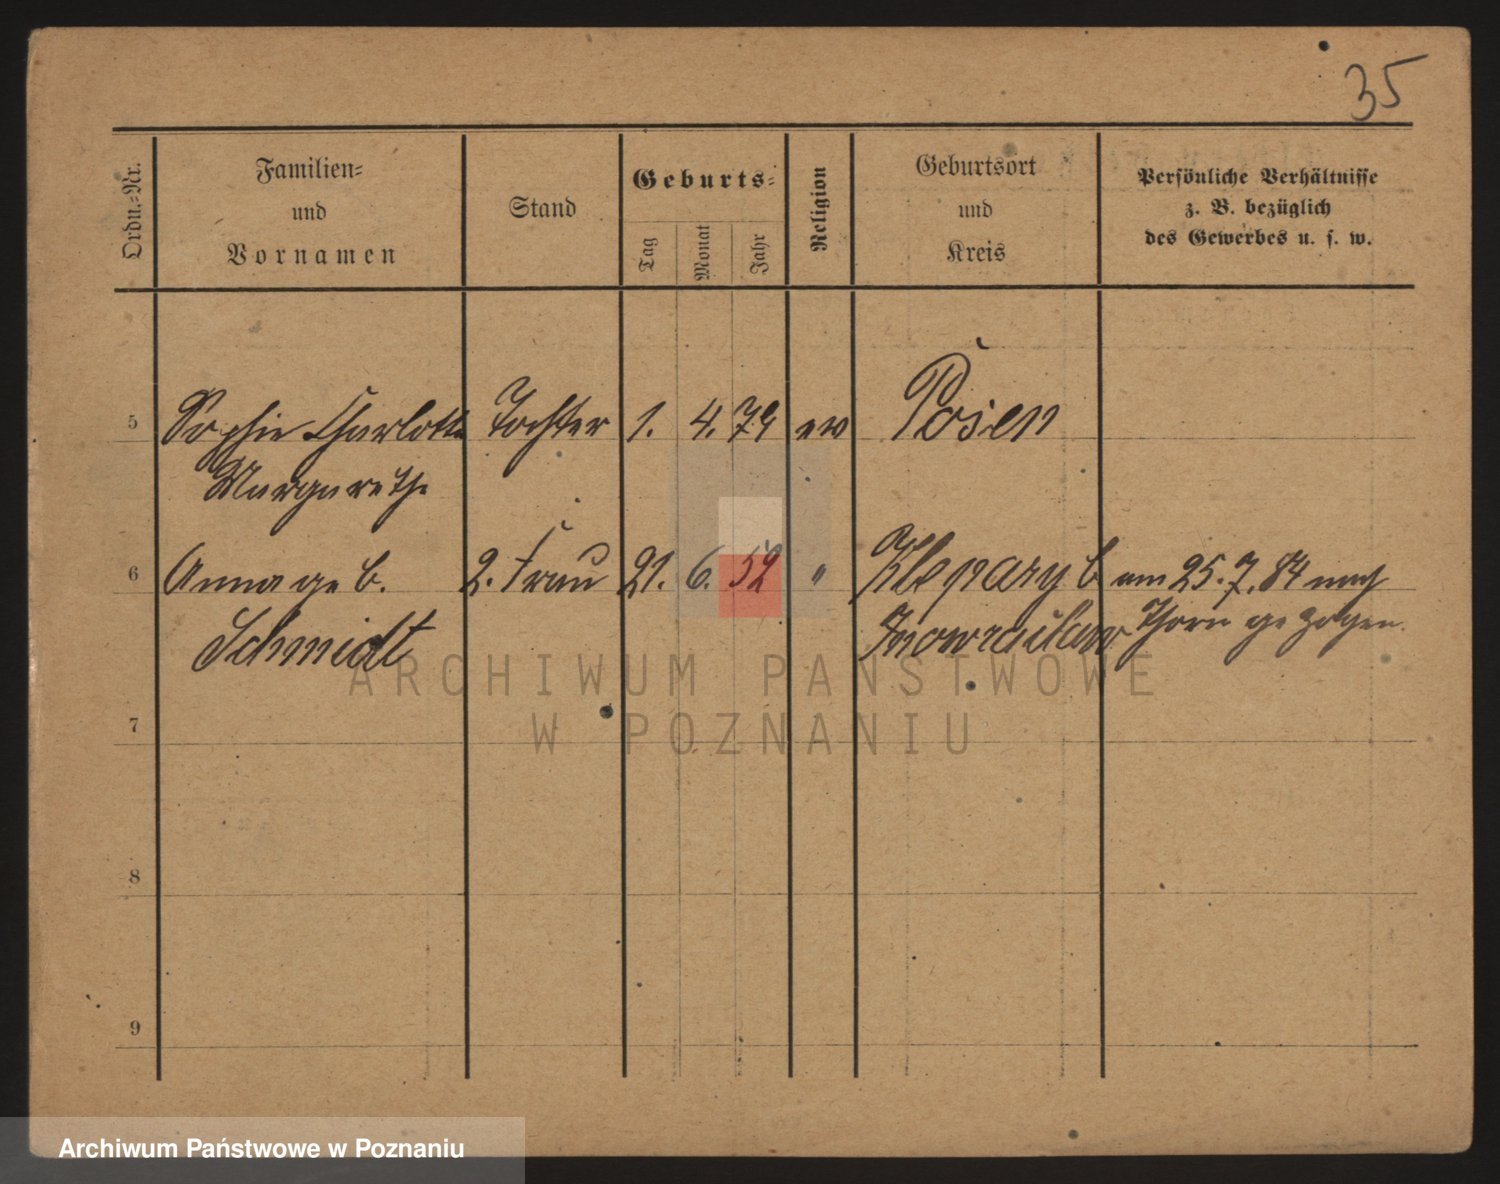 35
Ordn.-Nr.
Familien-
und
Vornamen
Stand
Geburts-
Tag
Monat
Jahr
Religion
Geburtsort
und
Kreis
Persönliche Verhältnisse
z. B. bezüglich
des Gewerbes u. s. w.
5 Sophie Charlotte Tochter 1. 4. 79 ev Posen
Margarethe
6 Anna geb. 2. Frau 21. 6. 52 " b am 25. 7. 84 nach
Schmidt Inowrazlaw Thorn gezogen.
7
8
9
ARCHIWUM PAŃSTWOWE
W POZNANIU
Archiwum Państwowe w Poznaniu